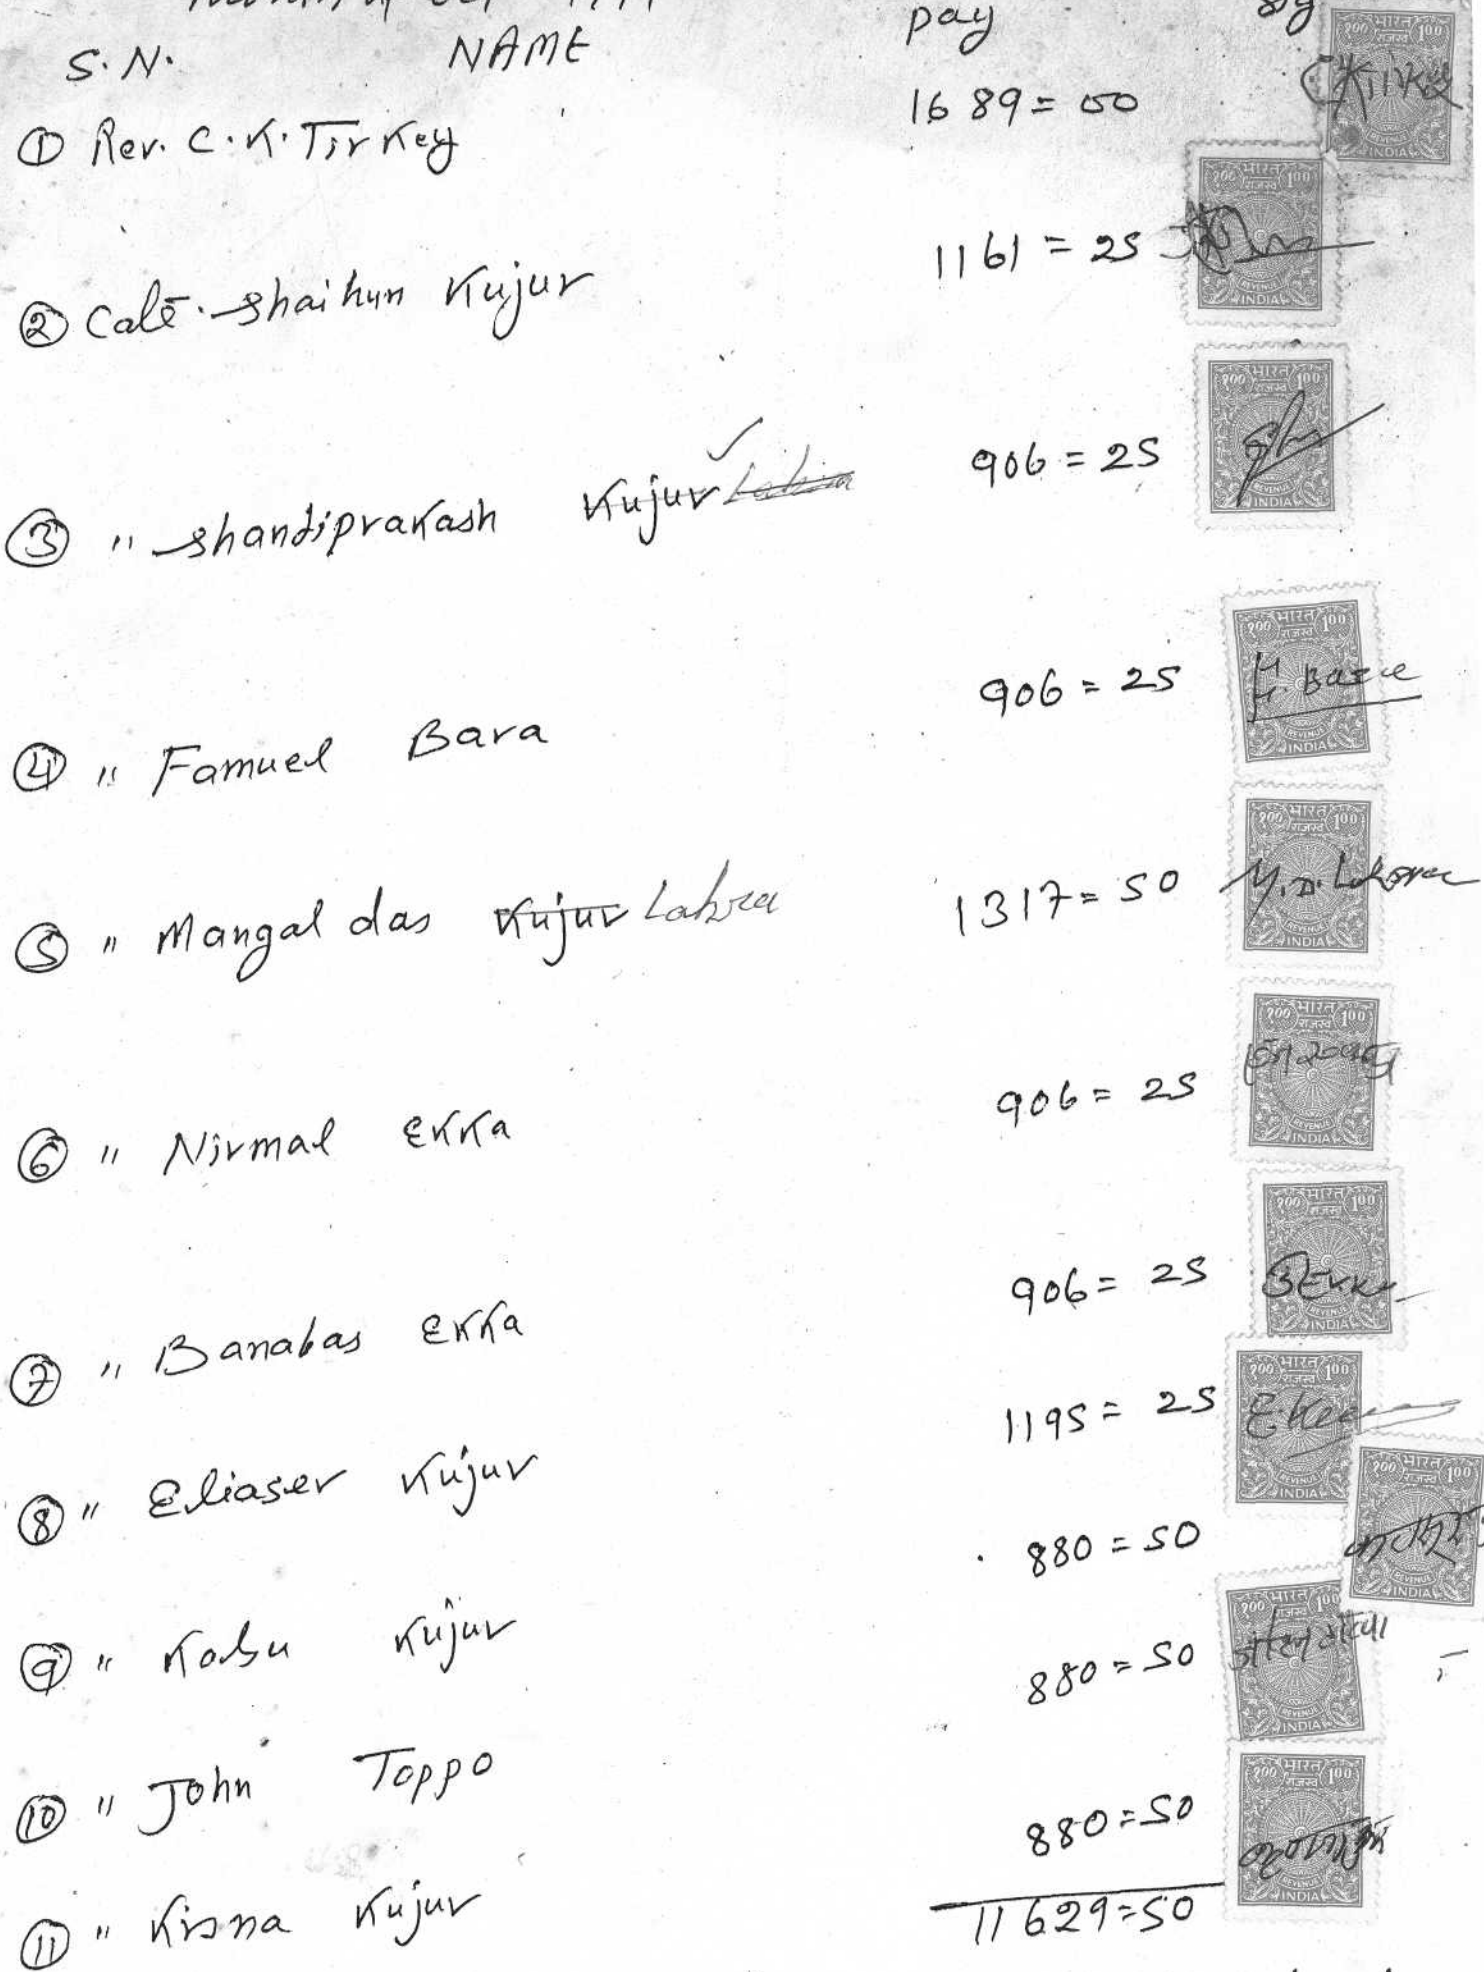 S.N. NAME pay
① Rev. C.K. Tirkey 1689=00
② Cate. Shaihun Kujur 1161=25
③ " Shantiprakash Kujur 906=25
④ " Famuel Bara 906=25
⑤ " Mangal das Kujur Lakra 1317=50 M.D. Lakra
⑥ " Nirmal Ekka 906=25
⑦ " Banabas Ekka 906=25 B Ekka
⑧ " Eliaser Kujur 1195=25
⑨ " Kolsu Kujur 880=50
⑩ " John Toppo 880=50
⑪ " Kisna Kujur 880=50
11629=50
भारत
राजस्व
१०० 100
REVENUE
INDIA